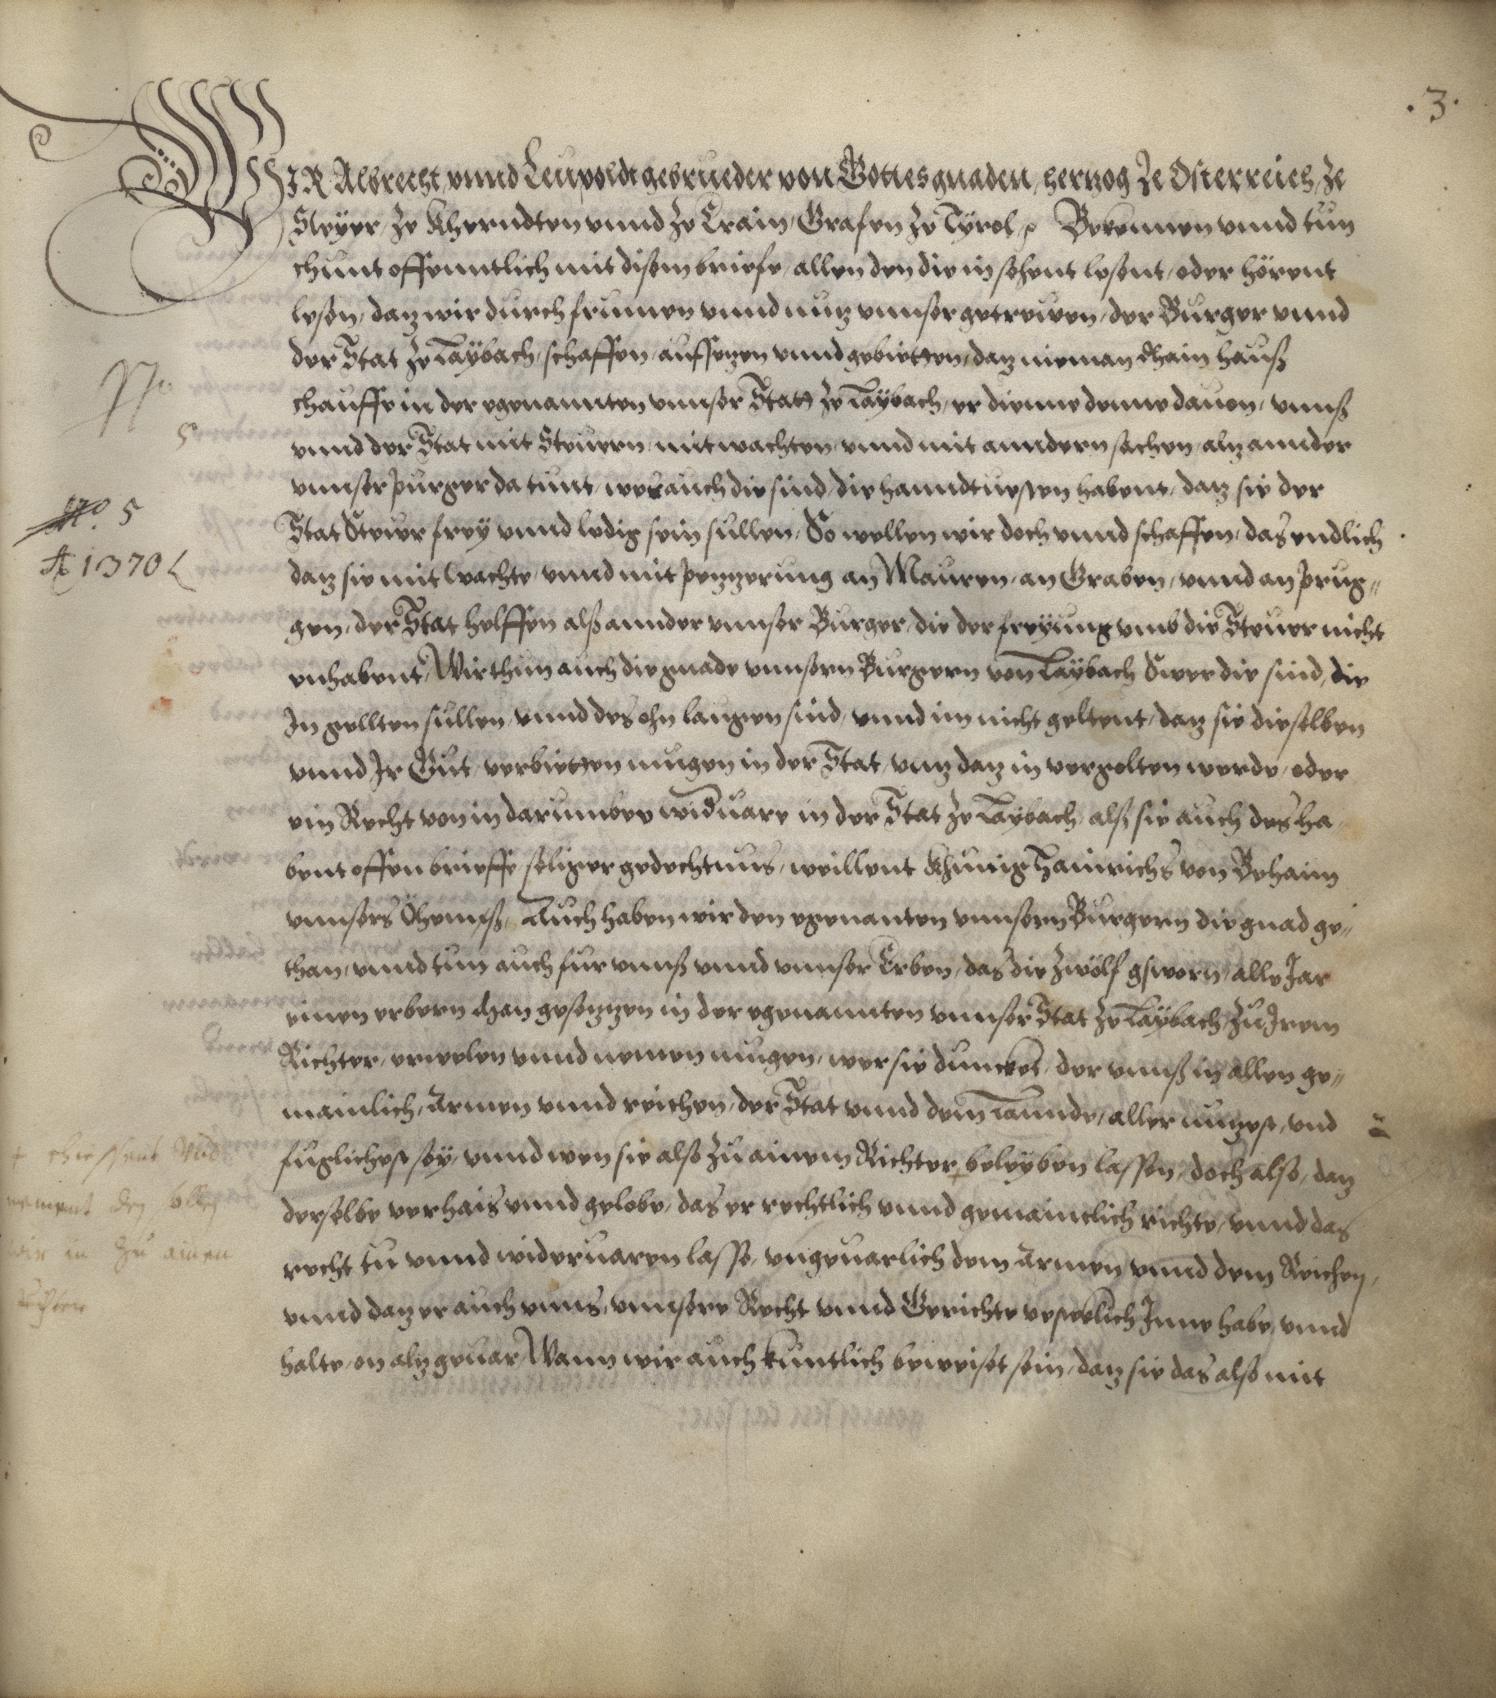 .3.
WIR Albrecht, vnnd Leupoldt gebrueder von Gottes gnaden, herzog Ze Osterreich, Ze
Steyer, Ze Kherndten vnnd Ze Crain, Grafen Ze Tyrol, Bekennen vnnd tun
chunt offenntlich mit disem briefe, allen den die in sehent lesent, oder hörent
lesen, daz wir durch frumen vnnd nuz vnnser getrewen, der Burger vnnd
der Stat Ze Laÿbach, schaffen, aufsezen vnnd gebietten, daz nieman chain hauß
chauffe in der egenannten vnnser Statt Ze Laÿbach, er dienne denne dauon, vnnß
vnnd der Stat mit Steuern, mit wachten, vnnd mit anndern sachen, alz annder
vnnser purger da tunt, wer auch die sind, die hanndtuessten habent, daz sie der
Stat Steuer frey vnnd ledig sein sullen, So wellen wir doch vnnd schaffen, das endlich
daz sie mit Wachte, vnnd mit pezzerung an Mauren, an Graben, vnnd an prug„
gen, der Stat helffen alß annder vnnser Burger, die der freÿung vmb die Steuer nicht
enhabent, Wir thun auch die gnade vnnsern Burgern von Laÿbach Swer die sind, die
In gellten sullen, vnnd des ohn laugen sind, vnnd im nicht geltent, daz sie dieselben
vnnd Ir Gut, verbietten mugen in der Stat, vnz daz in vergolten werde, oder
ein Recht von in darumbe widuare in der Stat Ze Laÿbach, alß sie auch des ha
bent offen brieffe seliger gedechtnus, weillent Khunig Hainrichs von Behaim
vnnsers Öhemß, Auch haben wir den egenanten vnnsern Burgern die gnad ge„
than, vnnd tun auch fur vnnß vnnd vnnser Erben, das die Zwölf gsworn, alle Jar
einen erbern Man gesezzen in der egenannten vnnser Stat Ze Laÿbach, Zu Irem
Richter, erwelen vnnd nemen mugen, wer sie duncket, der vnnß in allen ge„
mainlich, Armen vnnd reichen, der Stat vnnd dem Lannde, aller nuzest, vnd
fuglichest seÿ, vnnd wen sie also zu ainem Richter + beleyben lassen, doch also, daz
derselbe verhais vnnd gelobe, das er rechtlich vnnd gemainclich richte, vnnd das
recht tu vnnd wideruaren lasse, vngeuarlich dem Armen vnnd dem Reichen,
vnnd daz er auch vnns, vnnsere Recht vnnd Gerichte vestelich Inne habe, vnnd
halte, on alz geuar, Wann wir auch kuntlich beweiset sein, daz sie das also mit
No
5
No. 5
Ao 1370
+ chiessent vnd
nement den sollen
wir in zu ainem
richter